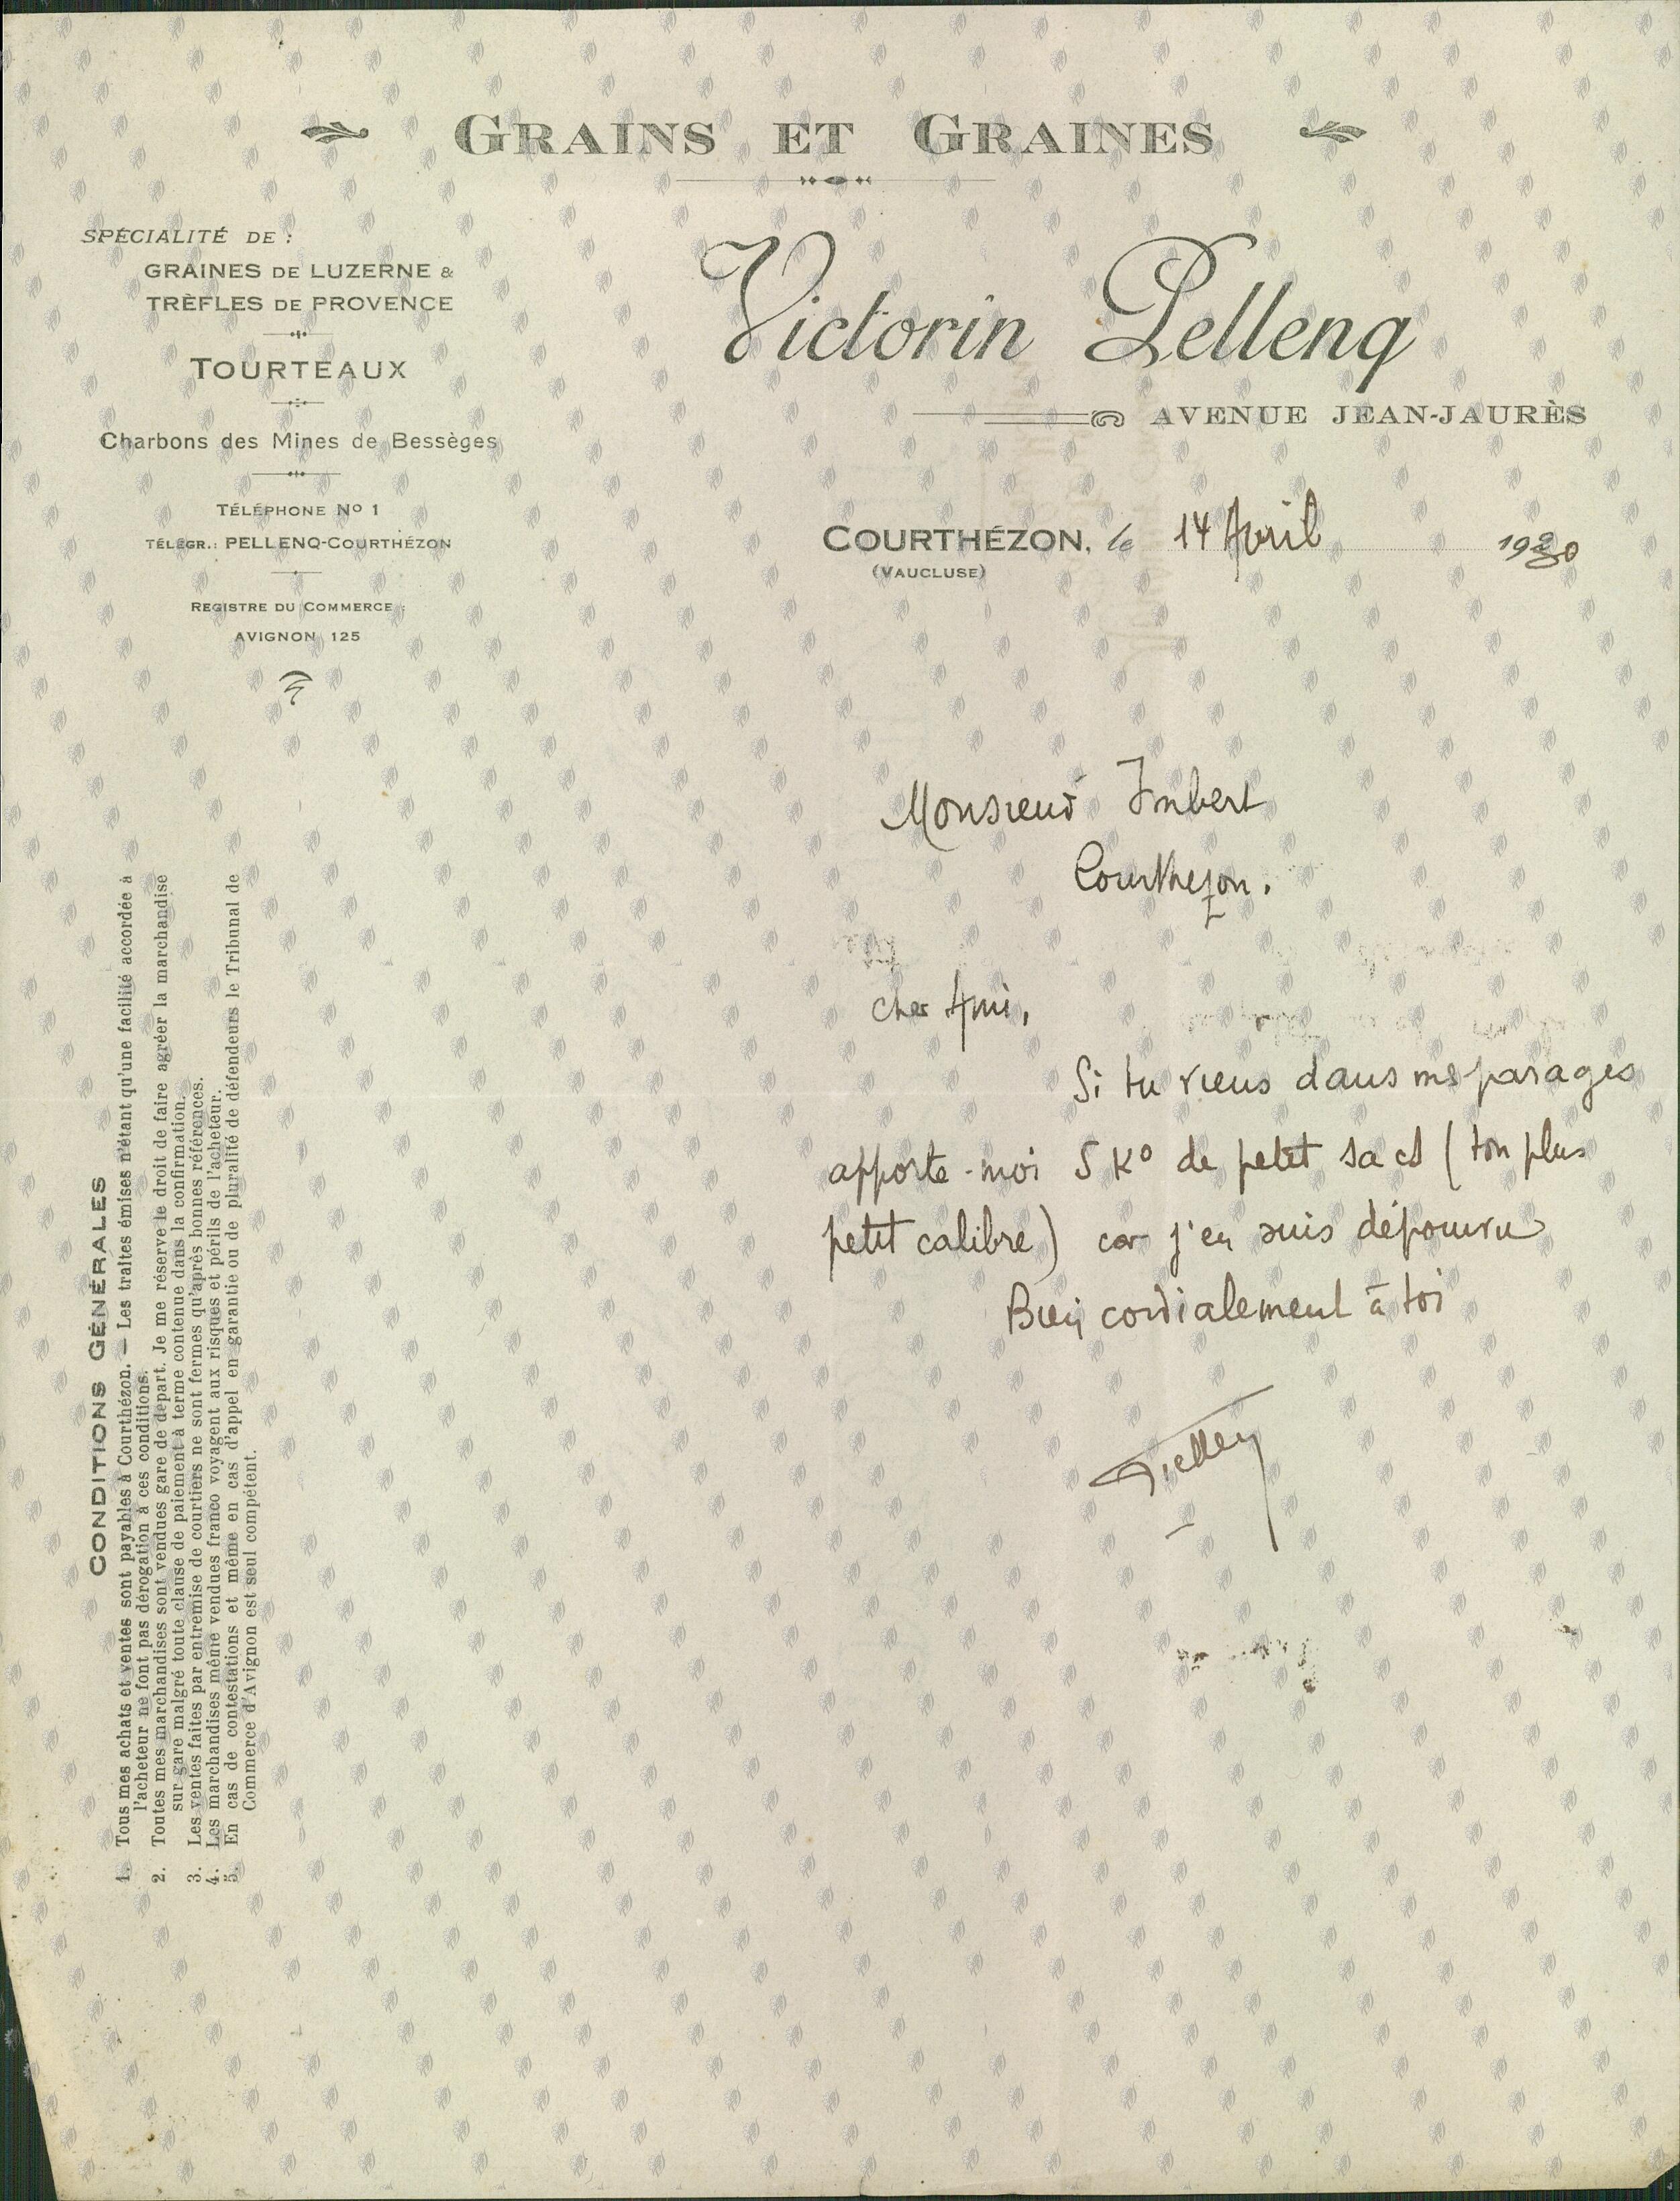 GRAINS ET GRAINES
SPÉCIALITÉ DE :
GRAINES DE LUZERNE &
TRÈFLES DE PROVENCE
TOURTEAUX
Charbons des Mines de Bessèges
TÉLÉPHONE Nº 1
TÉLÉGR.: PELLENQ-COURTHÉZON
REGISTRE DU COMMERCE :
AVIGNON 125
Victorin Pellenq
AVENUE JEAN-JAURÈS
COURTHÉZON, le 14 Avril 1930
(VAUCLUSE)
Monsieur Imbert
Courthezon.
Cher Ami,
Si tu viens dans mes parages
apporte-moi 5 Kº de petit sacs (ton plus
petit calibre) car j'en suis dépourvu
Bien cordialement à toi
Pellenq
CONDITIONS GÉNÉRALES
1. Tous mes achats et ventes sont payables à Courthézon. — Les traites émises n'étant qu'une facilité accordée à
l'acheteur ne font pas dérogation à ces conditions.
2. Toutes mes marchandises sont vendues gare de départ. Je me réserve le droit de faire agréer la marchandise
sur gare malgré toute clause de paiement à terme contenue dans la confirmation.
3. Les ventes faites par entremise de courtiers ne sont fermes qu'après bonnes références.
4. Les marchandises même vendues franco voyagent aux risques et périls de l'acheteur.
5. En cas de contestations et même en cas d'appel en garantie ou de pluralité de défendeurs le Tribunal de
Commerce d'Avignon est seul compétent.